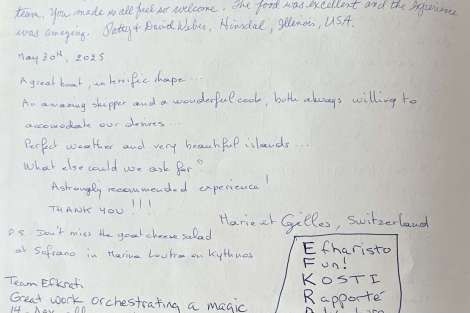 team, you made us all feel so welcome. The food was excellent and the experience
was amazing. Patty & David Weber, Hinsdal, Illenois, USA.
May 30th, 2025
A great boat, in terrific shape...
An amazing skipper and a wonderful cook, both always willing to
accomodate our desires...
Perfect weather and very beautiful islands...
What else could we ask for?
A strongly recommended experience!
THANK YOU!!!
Marie et Gilles, Switzerland
P.S. Don't miss the goat cheese salad
at Sofrano in Marina Loutra on Kythnos
Team Efkrati
Great work orchestrating a magic
14-day
Efharisto
Fun!
KOSTI
Rapporté